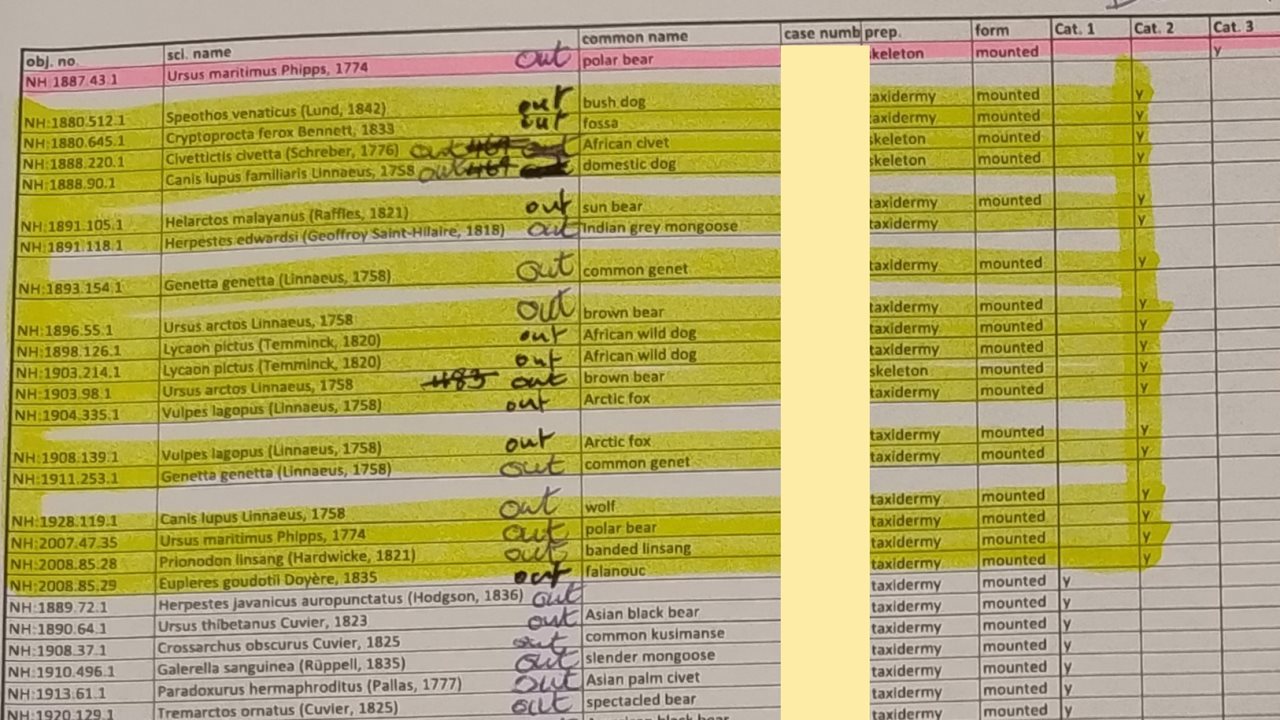 obj. no. sci. name common name case numb prep. form Cat. 1 Cat. 2 Cat. 3
NH:1887.43.1 Ursus maritimus Phipps, 1774 out polar bear skeleton mounted y
NH:1880.512.1 Speothos venaticus (Lund, 1842) out bush dog taxidermy mounted y
NH:1880.645.1 Cryptoprocta ferox Bennett, 1833 out fossa taxidermy mounted y
NH:1888.220.1 Civettictis civetta (Schreber, 1776) out 469 out African civet skeleton mounted y
NH:1888.90.1 Canis lupus familiaris Linnaeus, 1758 out 469 domestic dog skeleton mounted y
NH:1891.105.1 Helarctos malayanus (Raffles, 1821) out sun bear taxidermy mounted y
NH:1891.118.1 Herpestes edwardsi (Geoffroy Saint-Hilaire, 1818) out Indian grey mongoose taxidermy y
NH:1893.154.1 Genetta genetta (Linnaeus, 1758) out common genet taxidermy mounted y
NH:1896.55.1 Ursus arctos Linnaeus, 1758 out brown bear taxidermy mounted y
NH:1898.126.1 Lycaon pictus (Temminck, 1820) out African wild dog taxidermy mounted y
NH:1903.214.1 Lycaon pictus (Temminck, 1820) out African wild dog taxidermy mounted y
NH:1903.98.1 Ursus arctos Linnaeus, 1758 483 out brown bear skeleton mounted y
NH:1904.335.1 Vulpes lagopus (Linnaeus, 1758) out Arctic fox taxidermy mounted y
NH:1908.139.1 Vulpes lagopus (Linnaeus, 1758) out Arctic fox taxidermy mounted y
NH:1911.253.1 Genetta genetta (Linnaeus, 1758) out common genet taxidermy mounted y
NH:1928.119.1 Canis lupus Linnaeus, 1758 out wolf taxidermy mounted y
NH:2007.47.35 Ursus maritimus Phipps, 1774 out polar bear taxidermy mounted y
NH:2008.85.28 Prionodon linsang (Hardwicke, 1821) out banded linsang taxidermy mounted y
NH:2008.85.29 Eupleres goudotii Doyère, 1835 out falanouc taxidermy mounted y
NH:1889.72.1 Herpestes javanicus auropunctatus (Hodgson, 1836) out taxidermy mounted y
NH:1890.64.1 Ursus thibetanus Cuvier, 1823 out Asian black bear taxidermy mounted y
NH:1908.37.1 Crossarchus obscurus Cuvier, 1825 out common kusimanse taxidermy mounted y
NH:1910.496.1 Galerella sanguinea (Rüppell, 1835) out slender mongoose taxidermy mounted y
NH:1913.61.1 Paradoxurus hermaphroditus (Pallas, 1777) out Asian palm civet taxidermy mounted y
NH:1920.129.1 Tremarctos ornatus (Cuvier, 1825) out spectacled bear taxidermy mounted y
American black bear